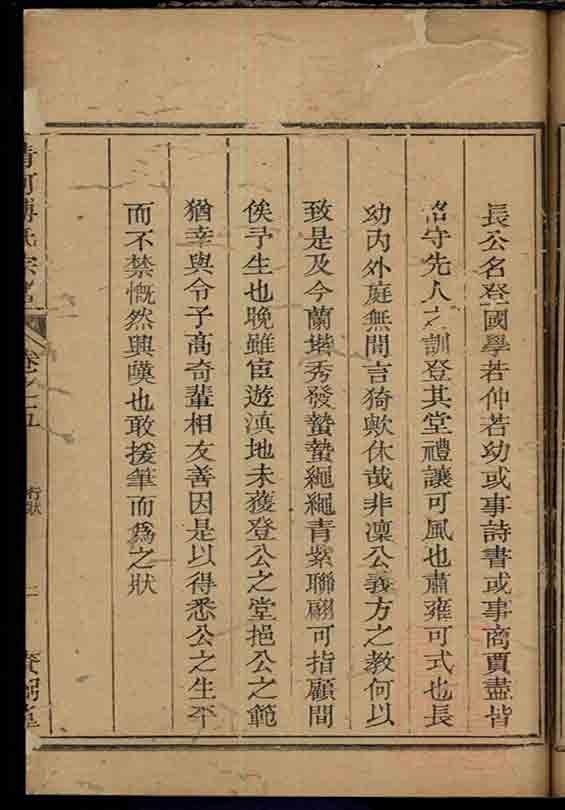 長公名登國學若仲若幼或事詩書或事商賈盡皆
恪守先人之訓登其堂禮讓可風也肅雍可式也長
幼內外庭無間言猗歟休哉非凜公義方之教何以
致是及今蘭堦秀發蟄蟄繩繩青紫聯翩可指顧間
俟予生也晚雖宦遊滇地未獲登公之堂挹公之範
猶幸與令子高奇輩相友善因是以得悉公之生平
而不禁慨然興嘆也敢援筆而爲之狀
清河傅氏宗譜
卷之五
行狀